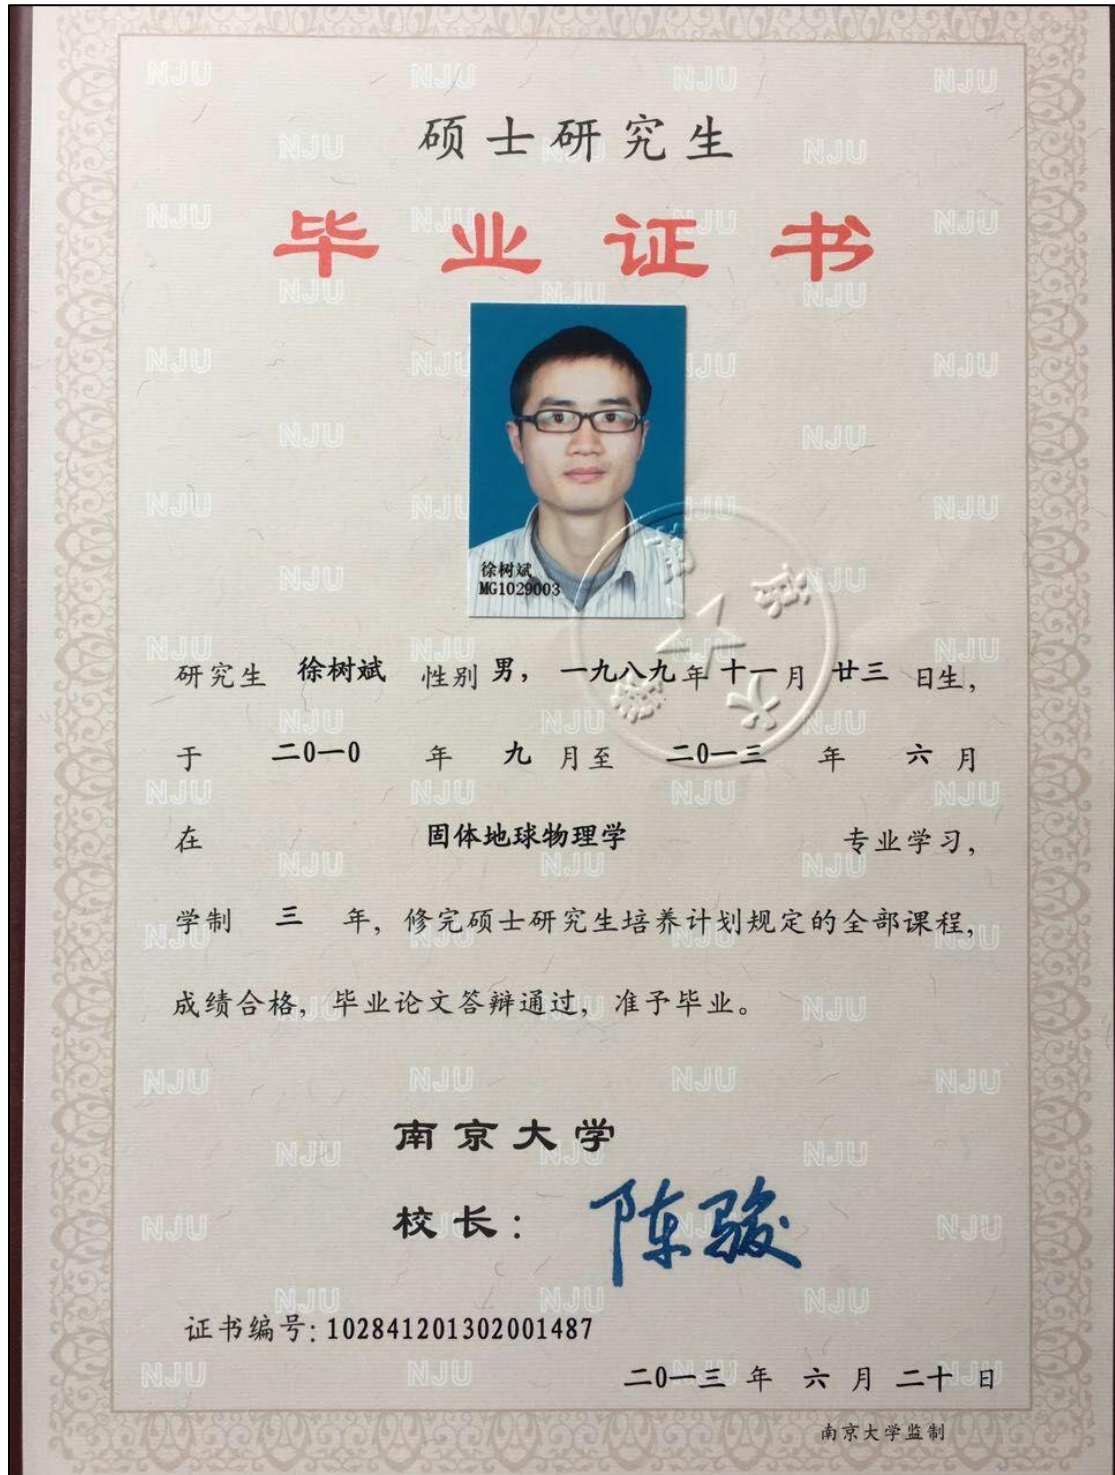 硕士研究生
毕业证书
徐树斌
MG1029003
研究生 徐树斌 性别 男， 一九八九 年 十一 月 廿三 日生，
于 二0一0 年 九 月至 二0一三 年 六 月
在 固体地球物理学 专业学习，
学制 三 年，修完硕士研究生培养计划规定的全部课程，
成绩合格，毕业论文答辩通过，准予毕业。
南京大学
校长： 陈骏
证书编号：102841201302001487
二0一三 年 六 月 二十 日
南京大学监制
NJU